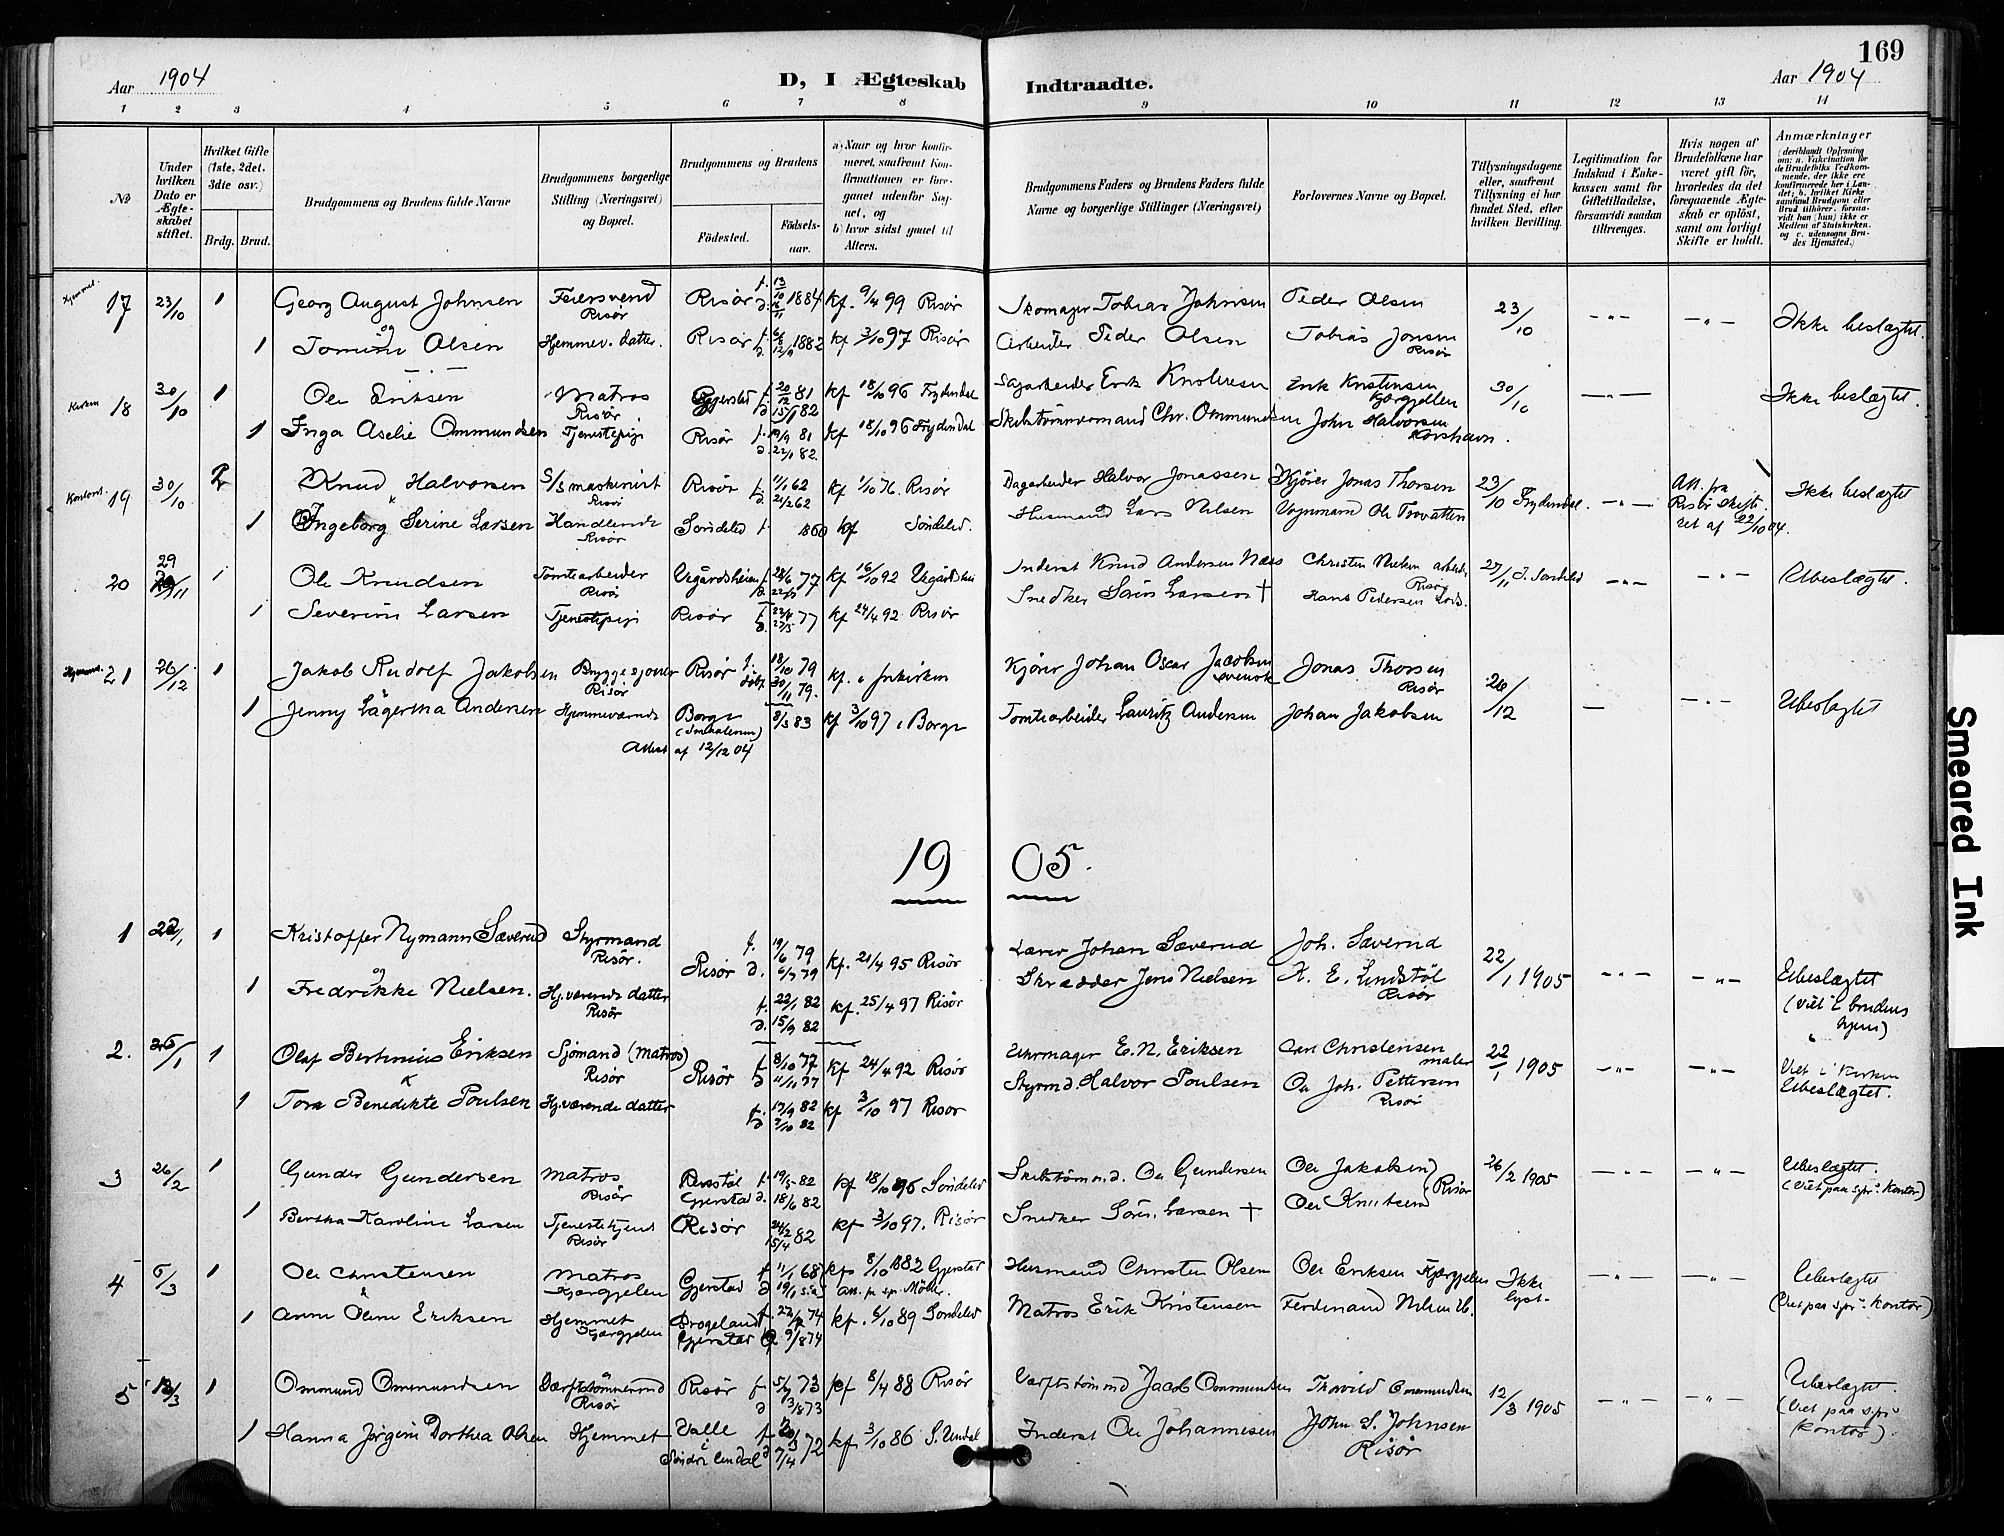 169
Aar 1904
D, I Ægteskab
Indtraadte.
Aar 1904
1 2 3 4 5 6 7 8 9 10 11 12 13 14
No
Under hvilken Dato er Ægteskabet stiftet.
Hvilket Gifte (1ste, 2det, 3die osv.)
Brdg. Brud.
Brudgommens og Brudens fulde Navne
Brudgommens borgerlige Stilling (Næringsvei) og Bopæl.
Brudgommens og Brudens
Fødested. Fødsels-aar.
a) Naar og hvor konfirmeret, saafremt Konfirmationen er foregaaet udenfor Sognet, og
b) hvor sidst gaaet til Alters.
Brudgommens Faders og Brudens Faders fulde Navne og borgerlige Stillinger (Næringsvei)
Forlovernes Navne og Bopæl.
Tillysningsdagene eller, saafremt Tillysning ei har fundet Sted, efter hvilken Bevilling.
Legitimation for Indskud i Enkekassen samt for Giftetilladelse, forsaavidt saadan tiltrænges.
Hvis nogen af Brudefolkene har været gift før, hvorledes da det foregaaende Ægteskab er opløst, samt om lovligt Skifte er holdt.
Anmærkninger (deriblandt Oplysning om: a. Vakcination for de Brudefolks Vedkommende, der ikke ere konfirmerede her i Landet; b. hvilket Kirkesamfund Brudgom eller Brud tilhører, forsaavidt han (hun) ikke er Medlem af Statskirken, og c. udensogns Brudes Hjemsted.)
17 23/10 1 Georg August Johnsen Feiersvend Risør Risør f. 13/10 d. 16/11 1884 kf. 9/4 99 Risør Skomager Tobias Johnsen Peder Olsen 23/10 Ikke beslægtet.
og
1 Tomine Olsen Hjemmev. datter. Risør 1882 kf 3/10 97 Risør Arbeider Peder Olsen Tobias Jonsen Risør
Kirken 18 30/10 1 Ole Eriksen Matros Risør Gjerstad f 20/12 81 d 15/1 82 kf 18/10 96 Frydendal Erik Kristensen Kjærgjelen 30/10 Ikke beslægtet.
1 Inga Aselie Ommundsen Tjenestepige Risør f. 19/9 81 d. 22/1 82. kf 18/10 96 Frydendal Chr. Ommundsen John Halvorsen Korshavn.
Kontoret. 19 30/10 2 Knud Halvorsen S/s maskinist Risør Risør f 1/1 62 d. 21/2 62 kf 1/10 76. Risør Dagarbeider Halvor Jonassen Kjører Jonas Thorsen 23/10 Frydendal. Att. fra Risør Skifteret af 22/10 04. Ikke beslægtet
1 Ingeborg Serine Larsen Handlende Risør Søndeled f 1860 kf Søndeled. Husmand Lars Nielsen Vognmand Ole Trovatten
20 29/11 1 Ole Knudsen Tomtearbeider Risør Vegårdsheien 77 kf 16/10 92 Inderst Knud Andersen Næs Christen Nielsen Risør 27/11 I. Søndeled Ubeslægtet.
1 Severine Larsen Tjenestepige Risør 77 kf 24/4 92. Risør Snedker Søren Larsen † Hans Pedersen Lods.
Hjemmet. 21 26/12 1 Jakob Rudolf Jakobsen Bryggesjouer Risør Risør f. 18/10 79 døbt 30/11 79. kf. i frikirken Kjører Johan Oscar Jacobsen svensk Jonas Thorsen Risør 26/12 Ubeslægtet
1 Jenny Lagertha Andersen Hjemmeværende Borge (Smaalenene) 8/3 83 kf 3/10 97 i Borge Tomtearbeider Lauritz Andersen Johan Jakobsen
Attest af 12/12 04
1905.
1 22/1 1 Kristoffer Nymann Sæverud Styrmand Risør. f. 19/6 79 79 kf. 21/4 95 Risør Lærer Johan Sæverud Joh. Sæverud 22/1 1905 Ubeslægtet (viet i brudens hjem)
og Risør d.
1 Fredrikke Nielsen. Hj.værende datter Risør f. 22/1 82 d. 15/9 82 kf. 25/4 97 Risør Skrædder Jens Nielsen A. E. Lindstøl Risør
2. 1 Olaf Bertinius Eriksen Sjømand (Matros) Risør Risør f 8/10 77 d 11/11 77 kf 24/4 92 Risør Uhrmager E. N. Eriksen Carl Christensen maler 22/1 1905 Viet i Kirken Ubeslægtet.
1 Tora Benedikte Poulsen Hj.værende datter f. 82 82 kf 3/10 97 Risør Styrmd. Halvor Poulsen Ole Joh. Pettersen Risør
3 26/2 1 Gunder Gundersen Matros Risør Gjerstad f 19/5 82 d. 18/6 82 kf 18/10 96 Søndeled Skibstømmd. Ole Gundersen Ole Jakobsen 26/2 1905 Ubeslægtet. (Viet paa spr. kontor)
1 Bertha Karoline Larsen Tjenestetjent Risør Risør 24/2 15/4 82 kf 3/10 97. Risør Snedker Søren Larsen † Ole Knudsen Risør
4 5/3 1 Ole Christensen Matros Kjærgjelen Gjerstad f 11/1 68 kf 8/10 1882 Gjerstad Husmand Christen Olsen Ole Eriksen Kjærgjelen Ikke lyst. Ubeslægtet (Viet paa spr. kontor)
1 Anne Oline Eriksen Hjemmet Kjærgjelen Gjerstad 74 9/8 74 kf. 6/10 89 Søndeled Matros Erik Kristensen Ferdinand Nilsen
5 12/3 1 Ommund Ommundsen Værftstømmermd Risør Risør f 73 73 kf 8/4 88 Risør Værftstømmd Jacob Ommundsen Thorvild Ommundsen 12/3 1905 Ubeslægtet. (Viet paa spr. kontor).
1 Hanna Jørgine Dorthea Olsen Hjemmet Valle i Søndre Undal 72 kf 3/10 86 S. Undal Inderst Ole Johannesen John S. Johnsen Risør
Smeared Ink